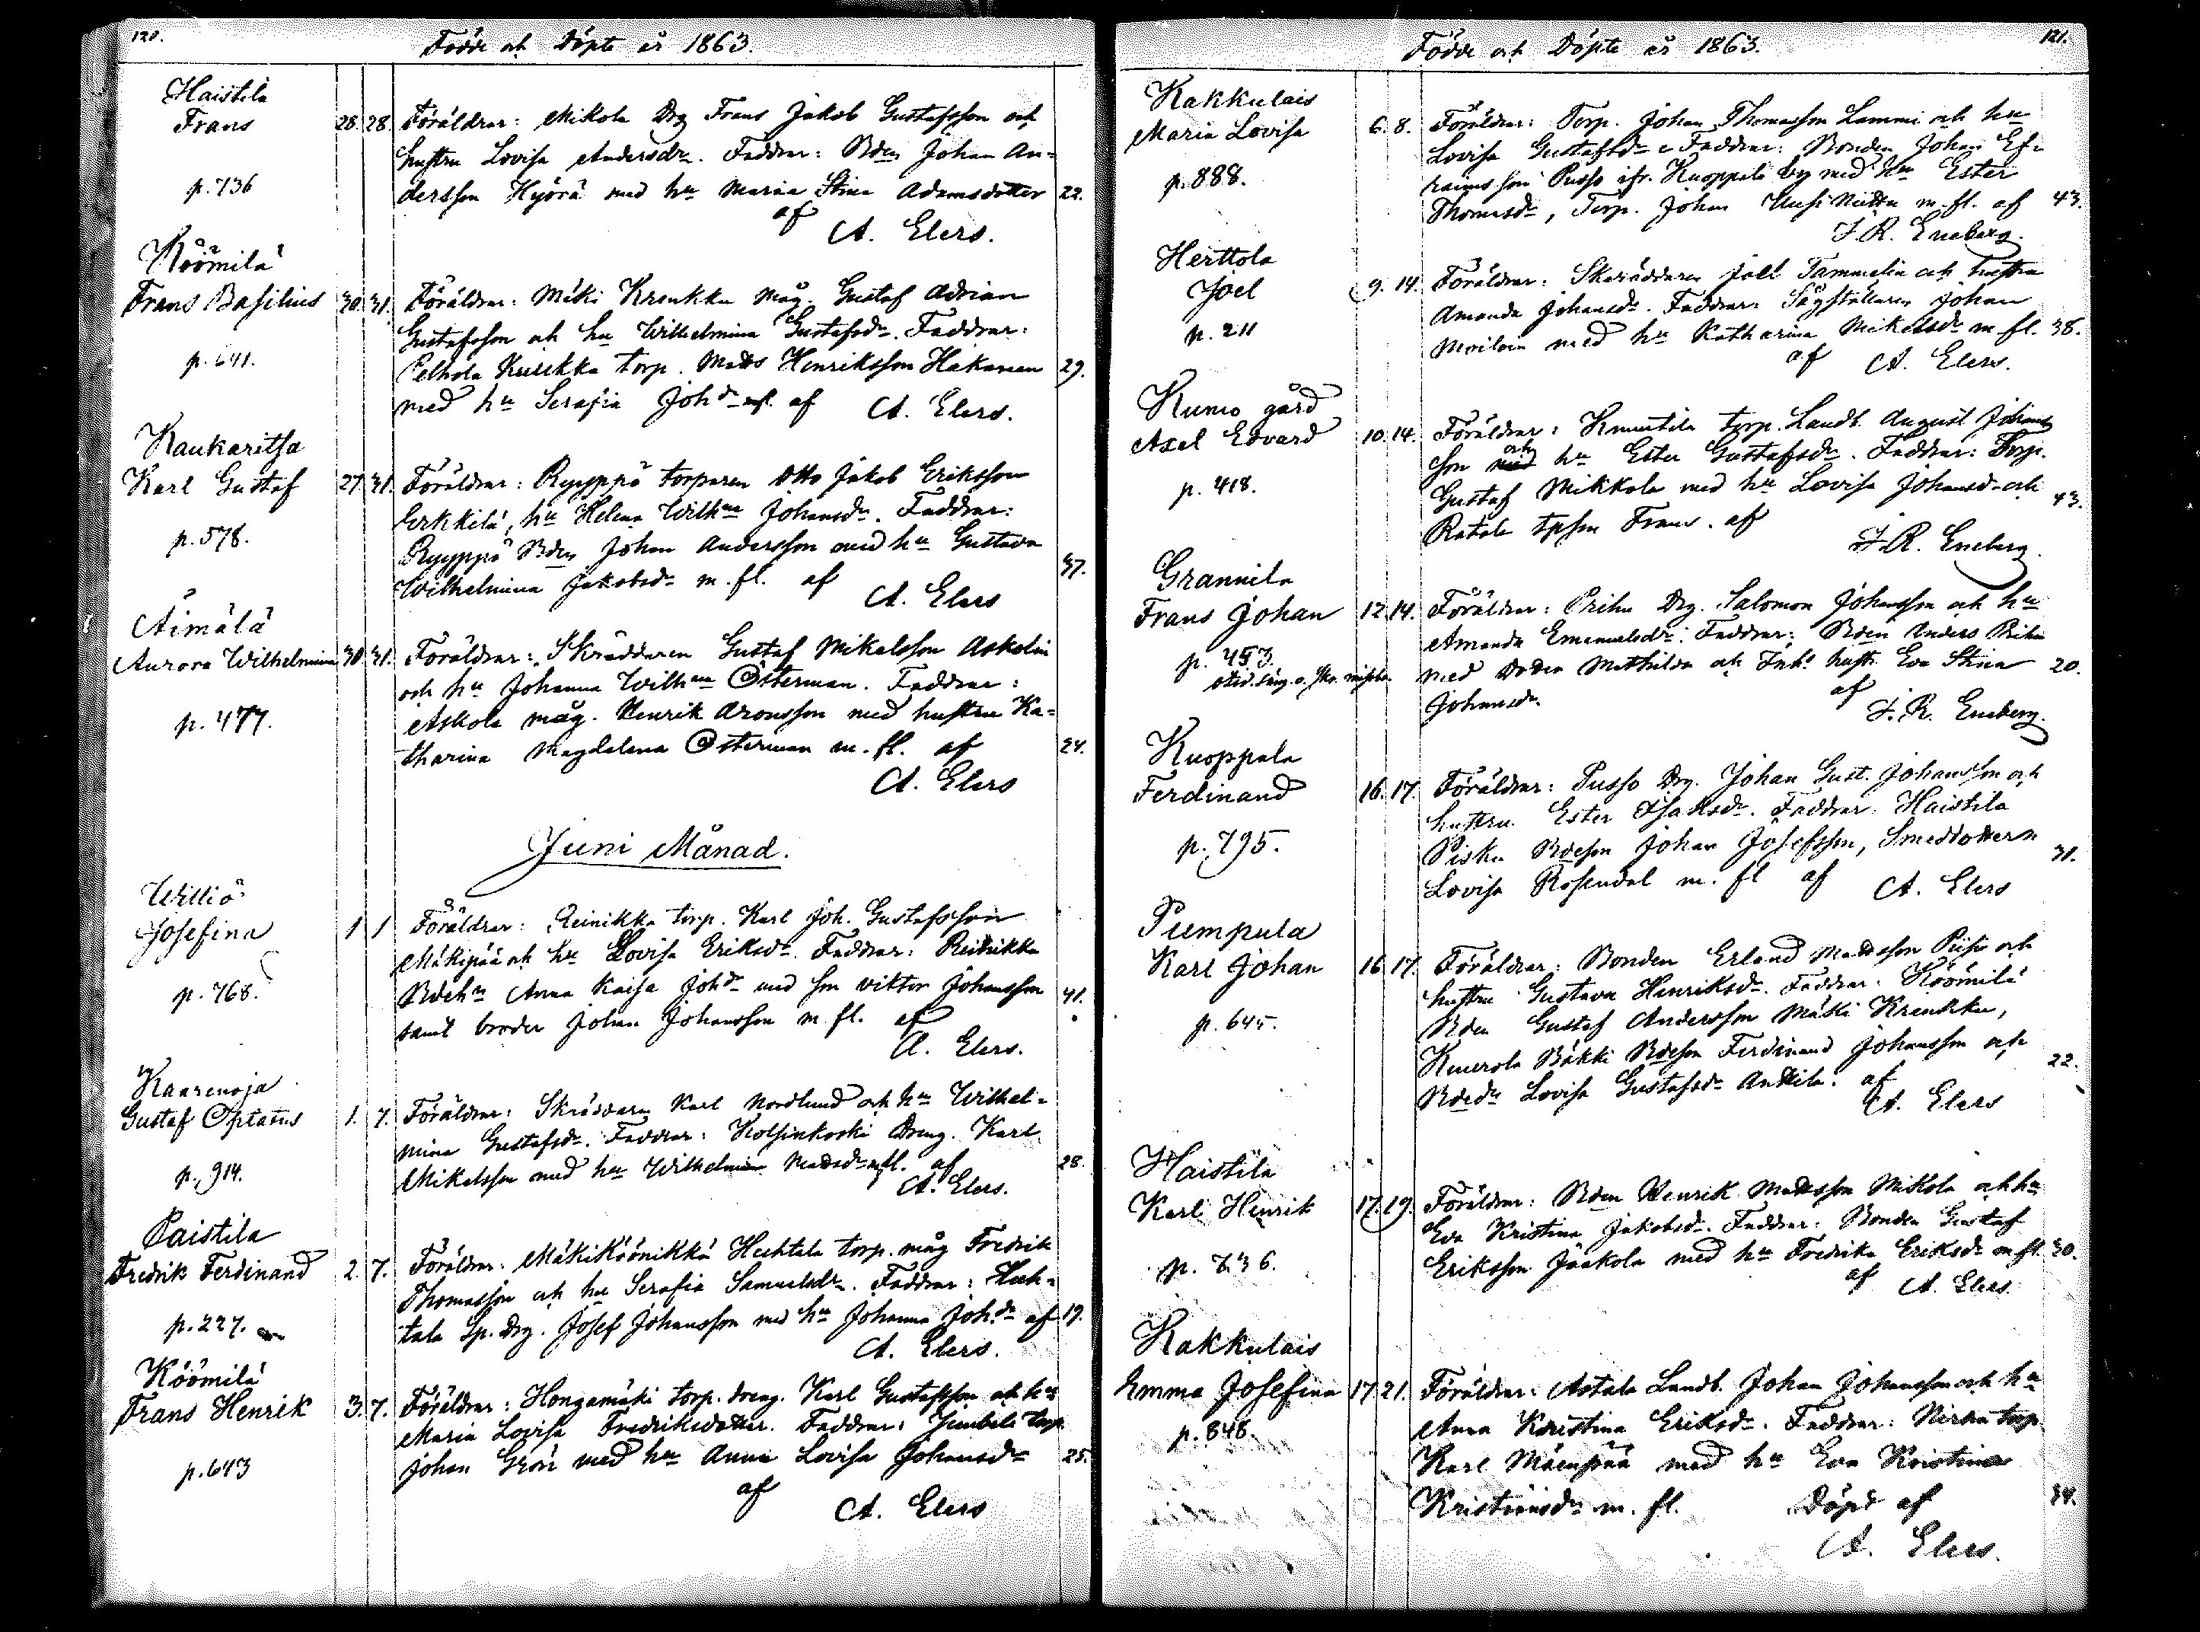 120.
Födde och Döpte år 1863.
Haistila
Frans
28. 28.
p. 736
Föräldrar: Mikola Drg Frans Jakob Gustafsson och
hustru Lovisa Andersdr. Faddrar: Bden Johan An-
dersson Hyörä med hu Maria Stina Adamsdotter
22.
af
A. Elers.
Köömilä
Frans Basilius
30. 31.
p. 641.
Föräldrar: Mäki Krenkku måg. Gustaf Adrian
Gustafsson och hu Wilhelmina Gustafsdr. Faddrar:
torp. Matts Henriksson Hakanen
29.
med hu Serafia Johdr m.fl. af A. Elers.
Kaukaritsa
Karl Gustaf
27. 31.
p. 578.
Föräldrar: Ryyppö torparen Otto Jakob Eriksson
Erkkilä, hu Helena Wilhna Johansdr. Faddrar:
Ryyppö Bden Johan Andersson med hu Gustava
37.
Wilhelmina Jakobsdr m. fl. af
A. Elers
Äimälä
Aurora Wilhelmina
30. 31.
p. 477.
Föräldrar: Skräddaren Gustaf Mikelsson Askolin
och hu Johanna Wilhna Österman. Faddrar:
Askola måg. Henrik Aronsson med hustru Ka-
tharina Magdalena Österman m. fl. af
24.
A. Elers
Juni Månad.
Williö
Josefina
1 1
p. 768.
Föräldrar: Reinikka torp. Karl Joh. Gustafsson
Mäkipää och hu Lovisa Eriksdr. Faddrar: Reinikka
Bdehu Anna Kaisa Johdr med son Viktor Johansson
41.
samt broder Johan Johansson m. fl. af
A. Elers.
Kaarenoja
Gustaf Optatus
1. 7.
p. 914.
Föräldrar: Skräddaren Karl Nordlund och hu Wilhel-
mina Gustafsdr. Faddrar: Kolsinkoski Dreng. Karl
Mikelsson med hu Wilhelmina Mattsdr m.fl. af
28.
A. Elers.
Paistila
Fredrik Ferdinand
2. 7.
p. 227.
Föräldrar: MäkiKöönikkä Huhtala torp. måg Fredrik
Thomasson och hu Serafia Samuelsdr. Faddrar: Huh-
tala Sp. Drg. Josef Johansson med hu Johanna Johdr af
19.
A. Elers.
Köömilä
Frans Henrik
3. 7.
p. 643
Föräldrar: Hongamäki torp. dreng. Karl Gustafsson och hu
Maria Lovisa Fredriksdotter. Faddrar: torp
Johan Grön med hu Anna Lovisa Johansdr
25.
af
A. Elers
121.
Födde och Döpte år 1863.
Kakkulais
Maria Lovisa
6. 8.
p. 888.
Föräldrar: Torp. Johan Thomasson Lammi och hu
Lovisa Gustafsdr. Faddrar: Bonden Johan Ef-
raimsson Pusso ifr. Kuoppala by med hu Ester
Thomasdr, Torp. Johan Uusi Niittu m. fl. af
43.
F. R. Eneberg.
Herttola
Joel
9. 14.
p. 211
Föräldrar: Skräddaren Joël Tammelin och hustru
Amanda Johansdr. Faddrar: Sågställaren Johan
Moilan med hu Katharina Mikelsdr m. fl.
38.
af A. Elers.
Kumo gård
Axel Edvard
10. 14.
p. 418.
Föräldrar: Knuutila torp. Landb. August Johans
son och hu Ester Gustafsdr. Faddrar: Torp.
Gustaf Mikkola med hu Lovisa Johansdr och
43.
Ratala tpson Frans. af
F. R. Eneberg.
Grannila
Frans Johan
12. 14.
p. 453
Föräldrar: Prihu Drg. Salomon Johansson och hu
Amanda Emanuelsdr. Faddrar: Bden Anders Prihu
med Mathilda och Inh. hustr. Eva Stina
20.
Johansdr.
af
F. R. Eneberg.
Kuoppala
Ferdinand
16. 17.
p. 795.
Föräldrar: Pusso Drg. Johan Gust. Johansson och
hustru Ester Isaksdr. Faddrar: Haistila
Piska Bdeson Johan Josefsson, Smedsdottern
31.
Lovisa Rosendal m. fl af
A. Elers
Pumpula
Karl Johan
16. 17.
p. 645.
Föräldrar: Bonden Erland Mattsson Piiju och
hustru Gustava Henriksdr. Faddrar: Köömilä
Bden Gustaf Andersson Mäki Krenkku,
Knuerola Bäkki Bdeson Ferdinand Johansson och
22.
Bdedr Lovisa Gustafsdr Anttila. af
A. Elers
Haistila
Karl Henrik
17. 19.
p. 736.
Föräldrar: Bden Henrik Mattsson Mikola och hu
Eva Kristina Jakobsdr. Faddrar: Bonden Gustaf
Eriksson Jaakola med hu Fredrika Eriksdr m.fl.
30.
af A. Elers.
Kakkulais
Emma Josefina
17. 21.
p. 848.
Föräldrar: Astala Landb. Johan Johansson och hu
Anna Kristina Eriksdr. Faddrar: torp
Karl Mäenpää med hu Eva Kristina
Kristiansdr m. fl. Döpt af
34.
A. Elers.